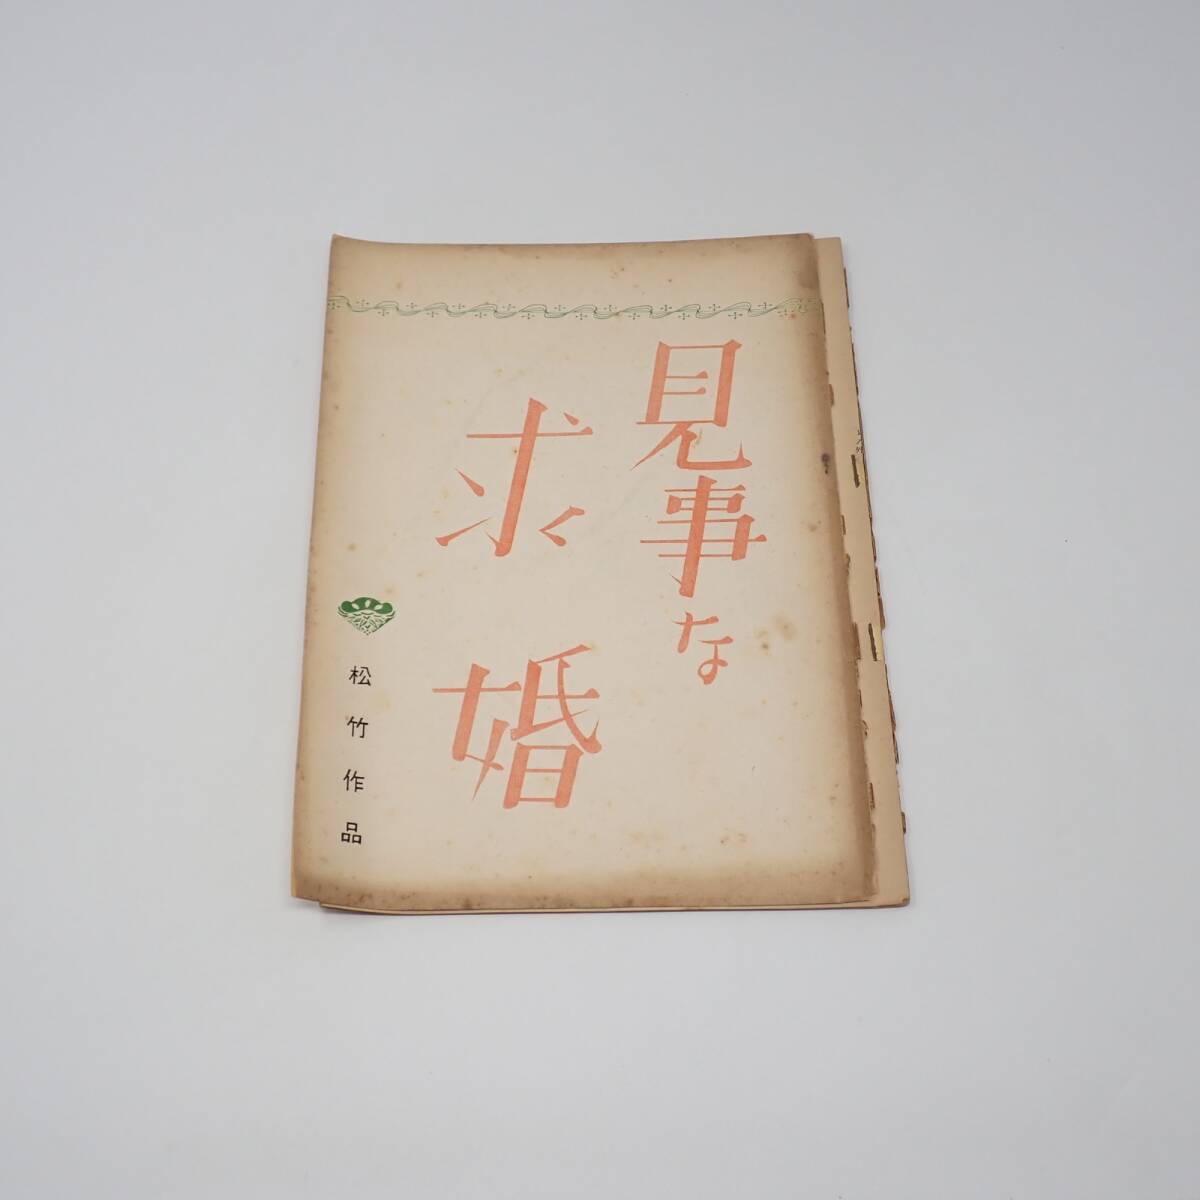 見事な
求婚
松竹作品